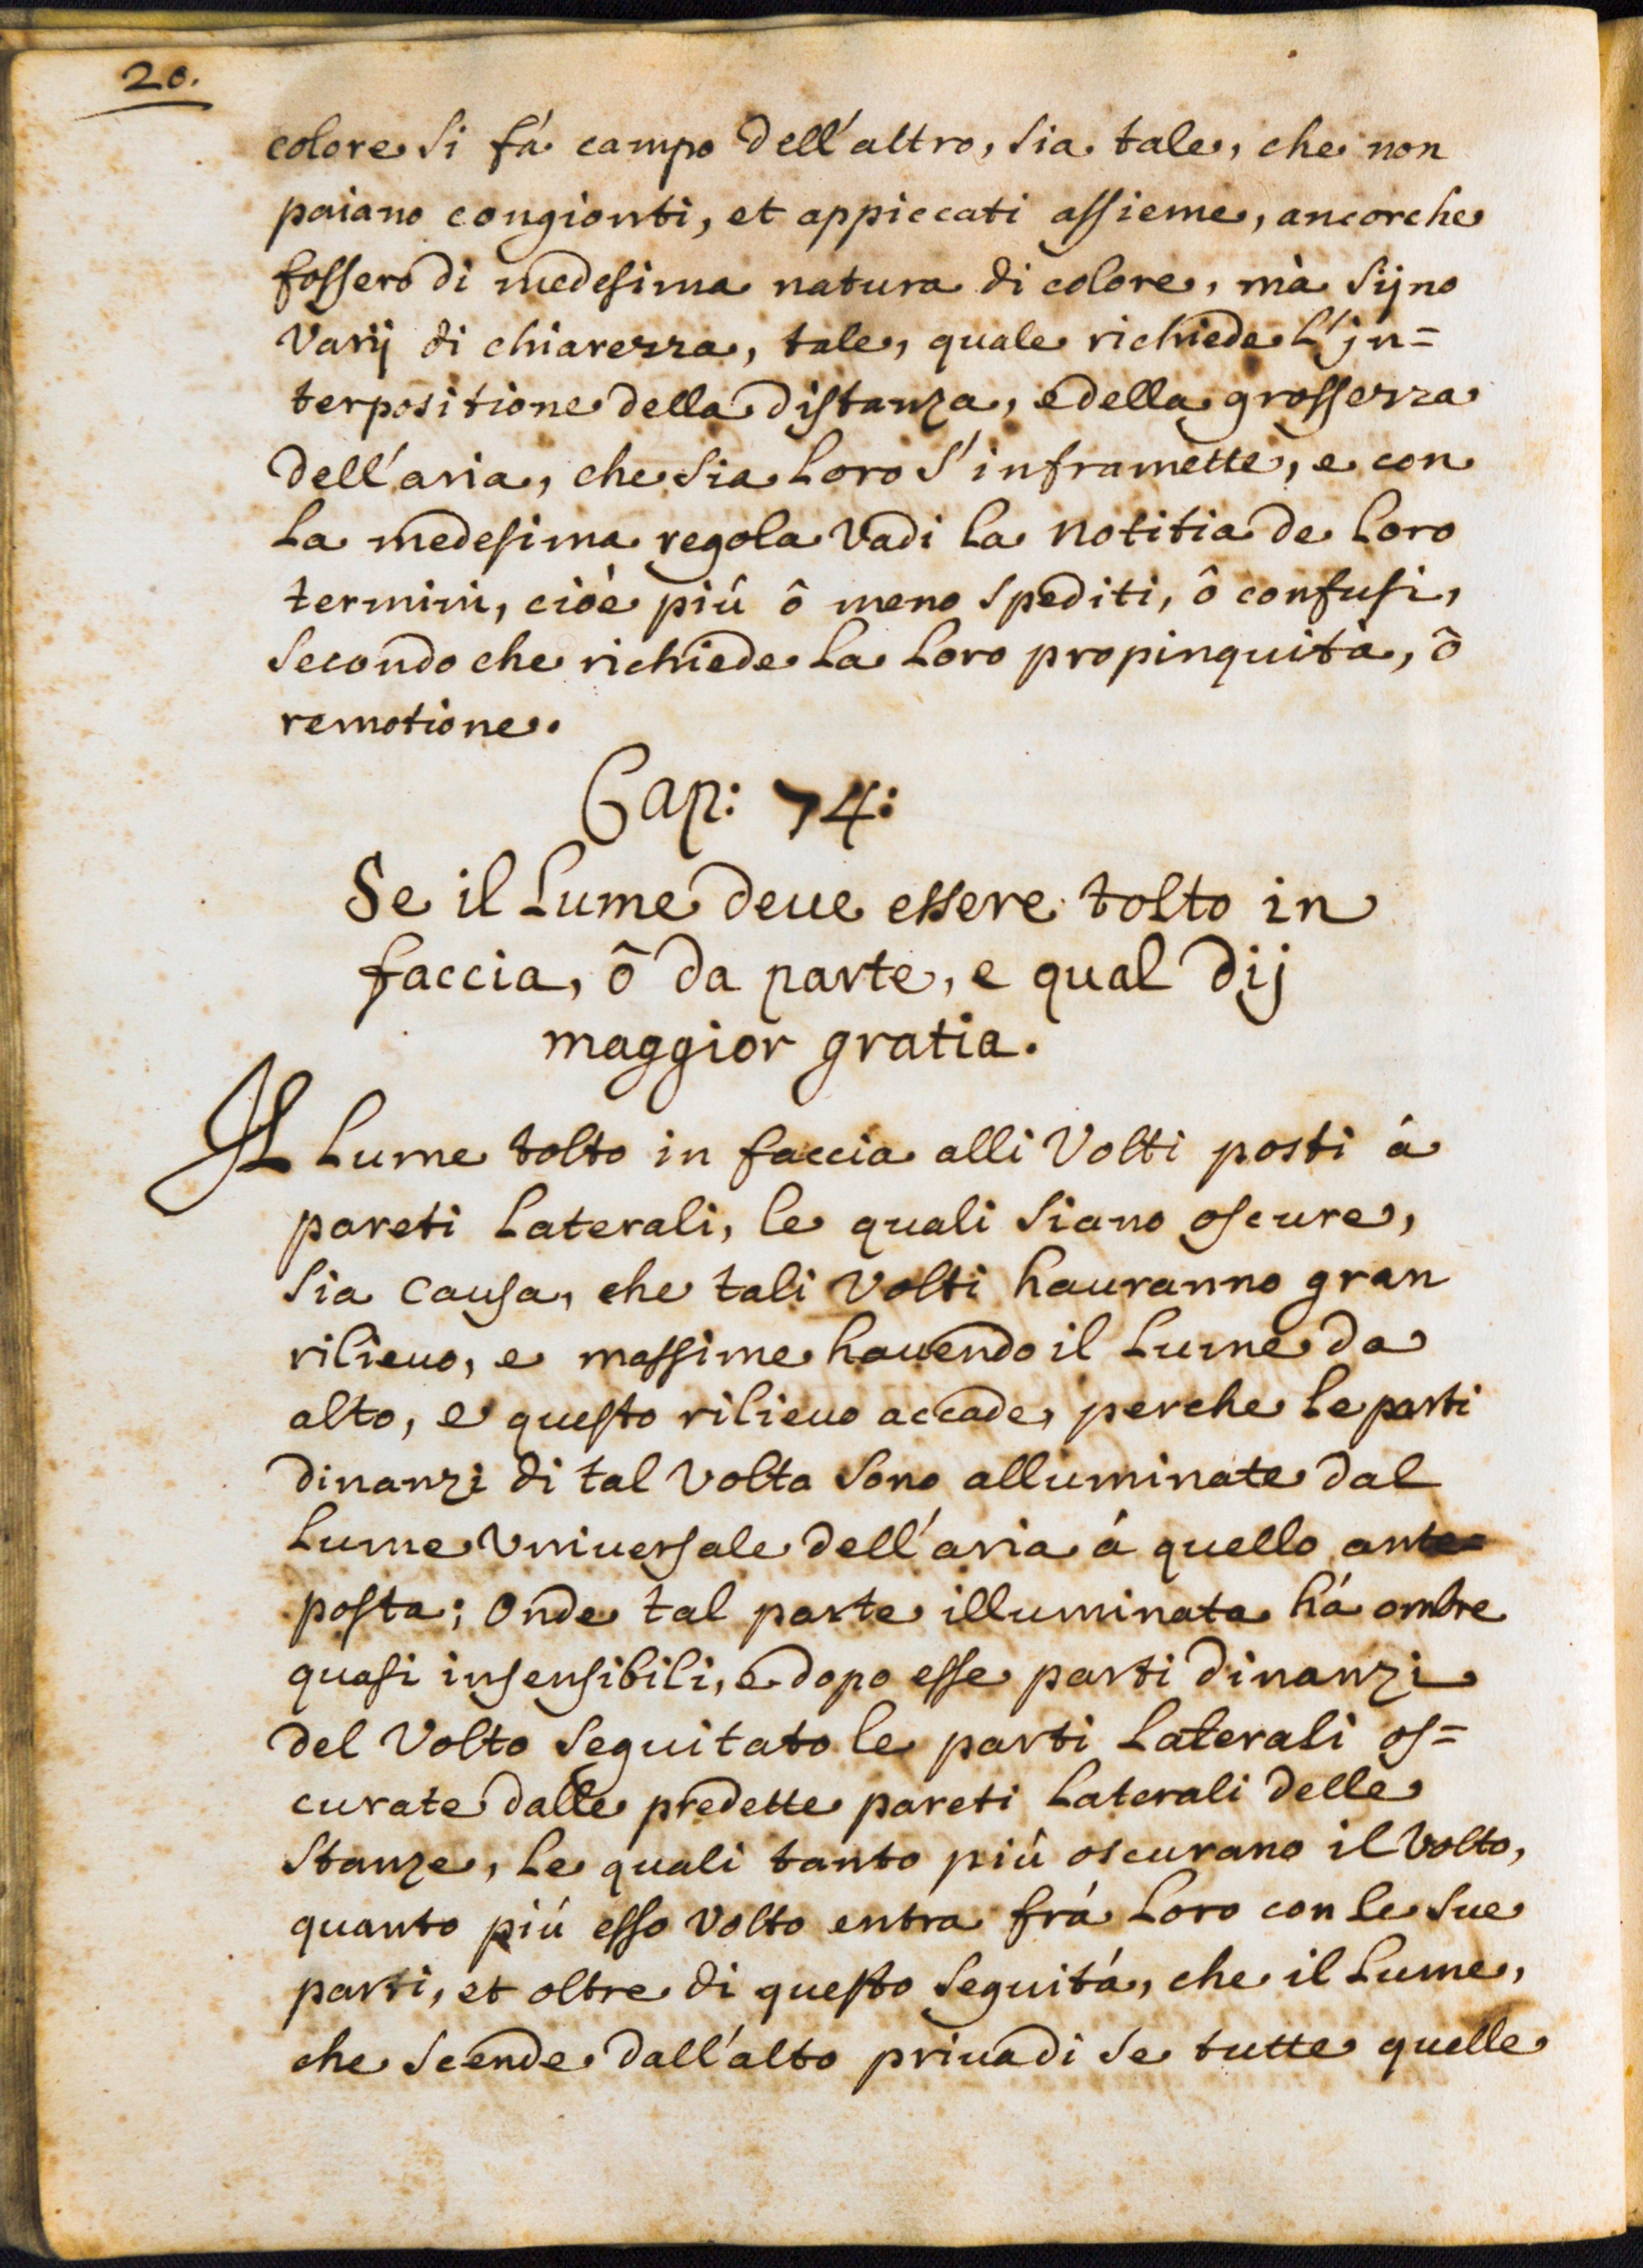 20.
colore si fá campo dell'altro, sia tale, che non
paiano congionti, et appiccati assieme, ancorche
fossero di medesima natura di colore, mà sijno
varij di chiarezza, tale, quale richiede l'jn=
terpositione della distanza, e della grossezza
dell'aria, che sia loro s'inframette, e con
la medesima regola vadi la notitia de loro
termini, cioè più ô meno spediti, ô confusi,
secondo che richiede la loro propinquita, ô
remotione.
Cap: 74:
Se il lume deue essere tolto in
faccia, ô da parte, e qual dij
maggior gratia.
Il lume tolto in faccia alli volti posti á
pareti laterali, le quali siano oscure,
sia causa, che tali volti hauranno gran
rilieuo, e massime hauendo il lume da
alto, e questo rilieuo accade, perche le parti
dinanzi di tal volta sono alluminate dal
lume vniuersale dell'aria á quello ante=
posta; onde tal parte illuminata há ombre
quasi insensibili, e dopo esse parti dinanzi
del volto seguitato le parti laterali os=
curate dalle predette pareti laterali delle
stanze, le quali tanto più oscurano il volto,
quanto piú esso volto entra frá loro con le sue
parti, et oltre di questo seguitá, che il lume,
che scende dall'alto priua di se tutte quelle